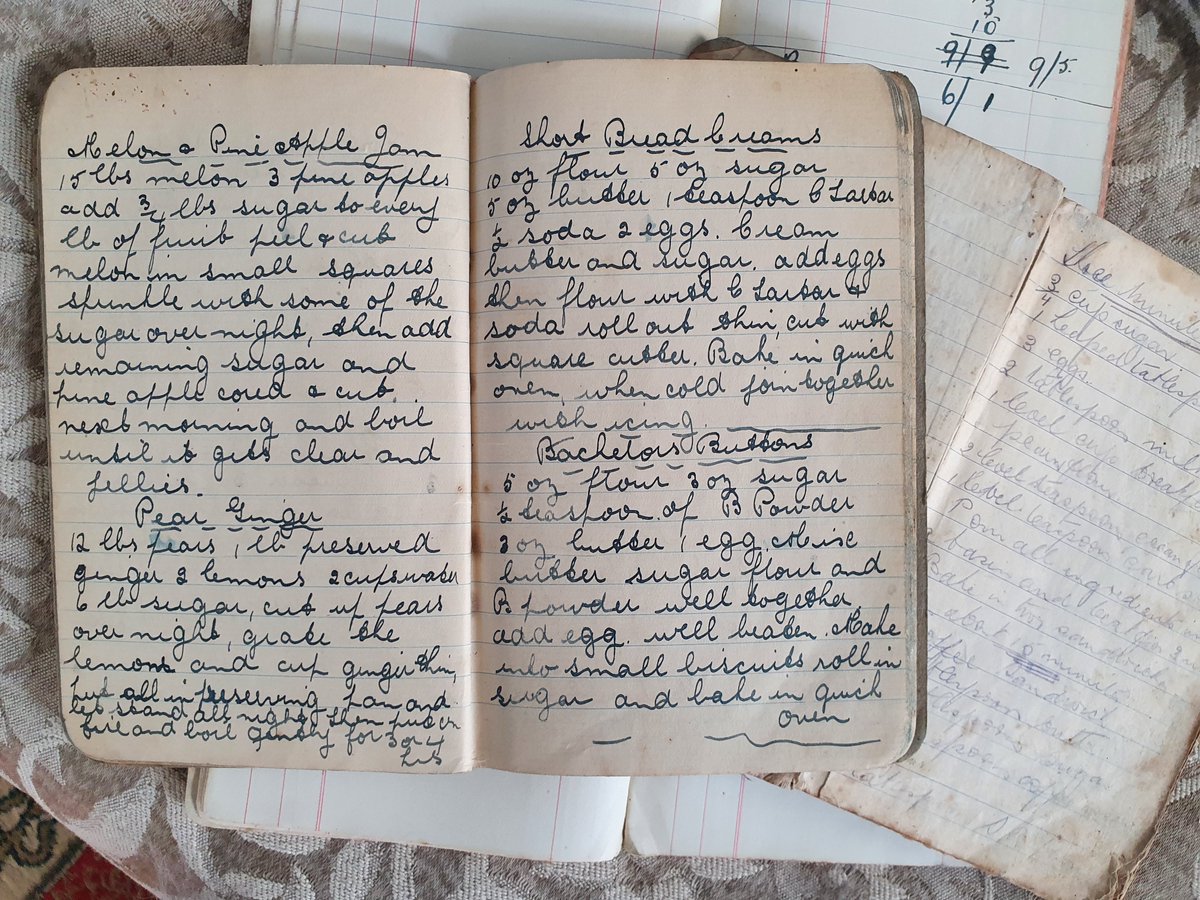 Melon & Pine Apple Jam
15 lbs melon 3 pine apples
add 3/4 lbs sugar to every
lb of fruit peel & cut
melon in small squares
sprinkle with some of the
sugar over night, then add
remaining sugar and
pine apple cored & cut
next morning and boil
until it gets clear and
jellies.
Pear Ginger
12 lbs pears 1 lb preserved
ginger 2 lemons 2 cups water
6 lb sugar, cut up pears
over night, grate the
lemons and cup ginger thin,
put all in preserving pan and
let stand all night then put on
fire and boil gently for 3 or 4
hrs
Short Bread Creams
10 oz flour 5 oz sugar
5 oz butter 1 teaspoon C Tartar
½ soda 2 eggs. Cream
butter and sugar. add eggs
then flour with C Tartar &
soda roll out thin, cut with
square cutter. Bake in quick
oven, when cold join together
with icing.
Bachelors Buttons
5 oz flour 3 oz sugar
½ teaspoon of B Powder
3 oz butter 1 egg. Mix
butter sugar flour and
B powder well together
add egg. well beaten. Make
into small biscuits roll in
sugar and bake in quick
oven
3
10
9/5.
6/1
3/4 cup sugar
3 eggs.
2 tablespoons milk
1 level cup
2 level teaspoons
level teaspoon